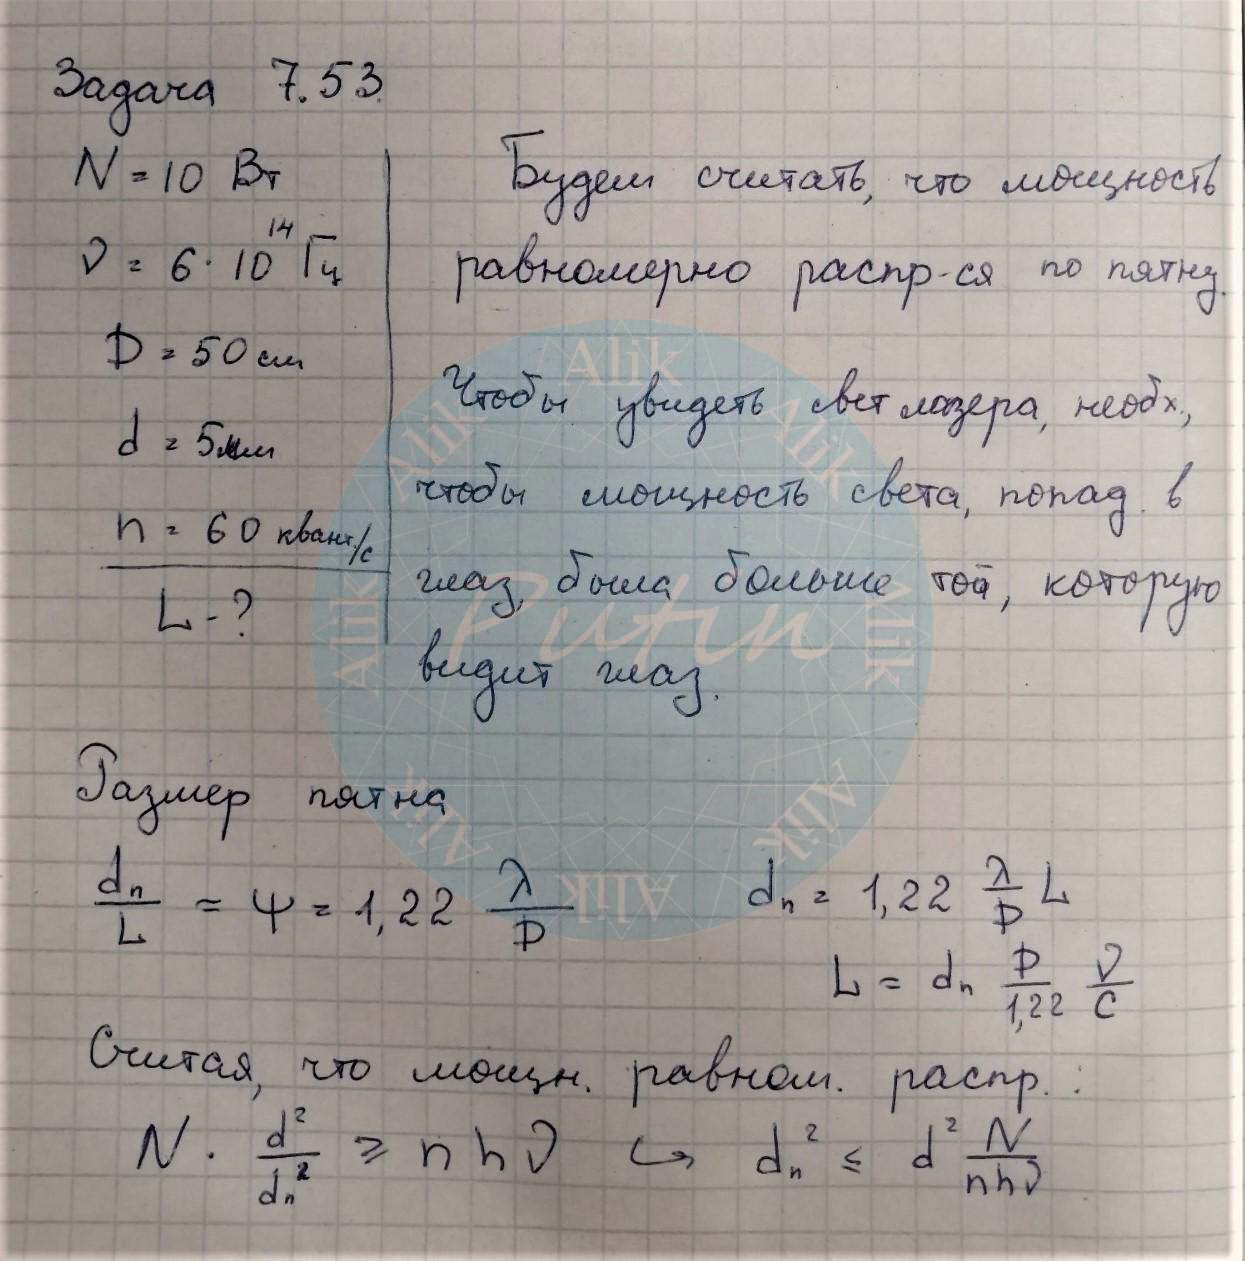 Задача 7.53.
N = 10 Вт
ν = 6·10¹⁴ Гц
D = 50 см
d = 5мм
n = 60 квант/с
L - ?
Будем считать, что мощность
равномерно распр-ся по пятну.
Чтобы увидеть свет лазера, необх.,
чтобы мощность света, попад. в
глаз, была больше той, которую
видит глаз.
Размер пятна
dₙ/L ≈ ψ = 1,22 λ/D
dₙ = 1,22 λ/D L
L = dₙ D/1,22 ν/c
Считая, что мощн. равном. распр.:
N · d²/dₙ² ⩾ n h ν ↪ dₙ² ≤ d² N/nhν
Alik
Alik
Alik
Alik
Alik
Alik
Alik
Alik
Putin